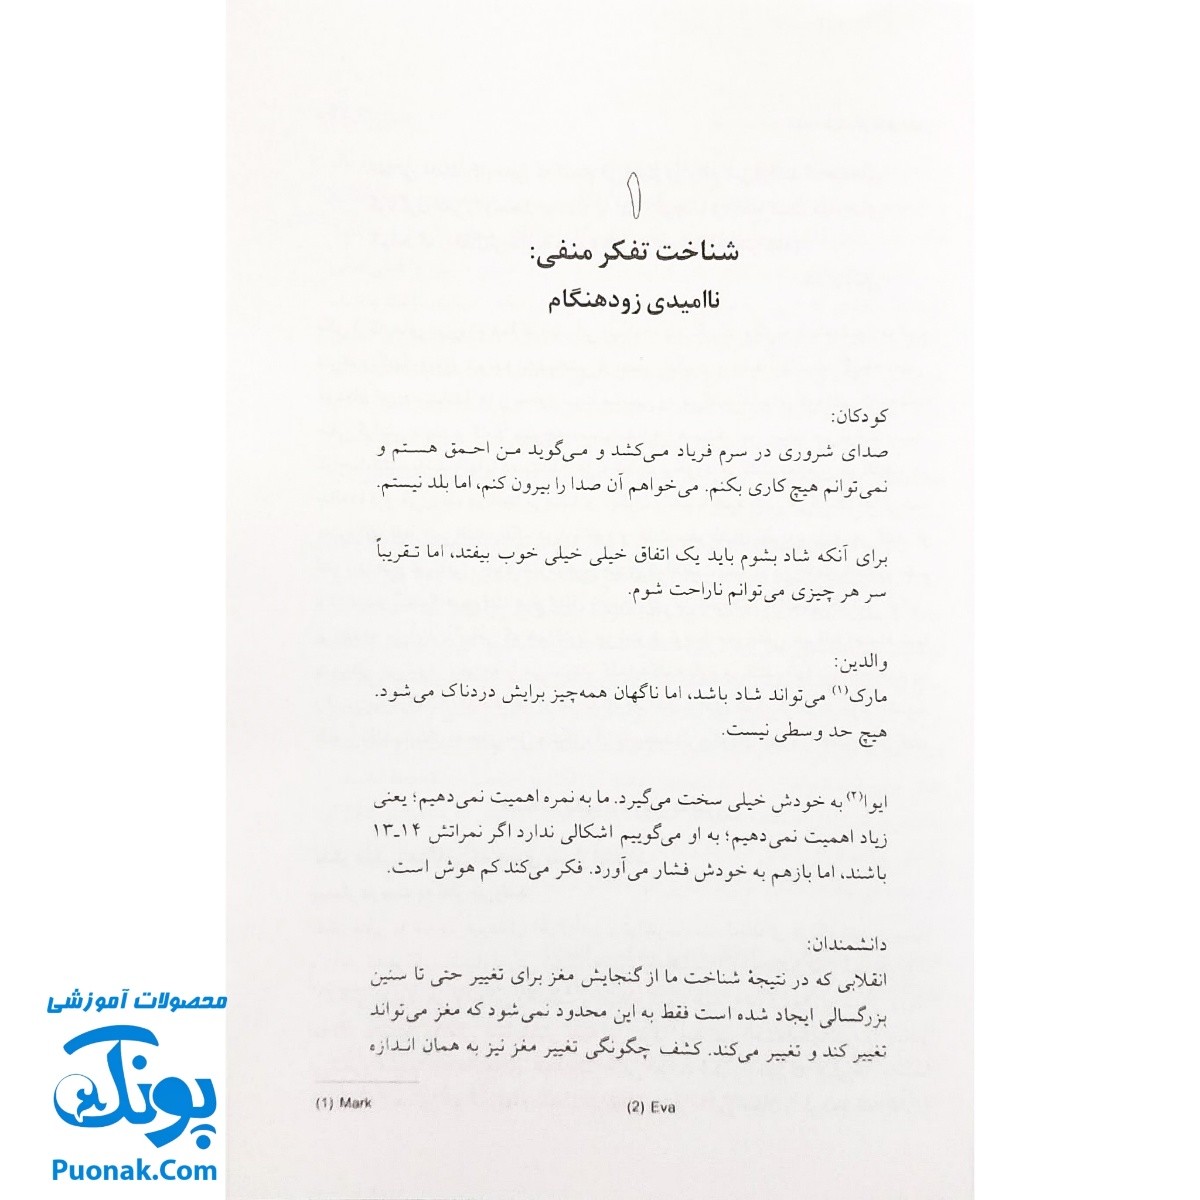 ۱
شناخت تفکر منفی:
ناامیدی زودهنگام
کودکان:
صدای شروری در سرم فریاد می‌کشد و می‌گوید من احمق هستم و
نمی‌توانم هیچ کاری بکنم. می‌خواهم آن صدا را بیرون کنم، اما بلد نیستم.
برای آنکه شاد بشوم باید یک اتفاق خیلی خیلی خوب بیفتد، اما تقریباً
سر هر چیزی می‌توانم ناراحت شوم.
والدین:
مارک(۱) می‌تواند شاد باشد، اما ناگهان همه‌چیز برایش دردناک می‌شود.
هیچ حد وسطی نیست.
ایوا(۲) به خودش خیلی سخت می‌گیرد. ما به نمره اهمیت نمی‌دهیم؛ یعنی
زیاد اهمیت نمی‌دهیم؛ به او می‌گوییم اشکالی ندارد اگر نمراتش ۱۴ـ۱۳
باشند، اما بازهم به خودش فشار می‌آورد. فکر می‌کند کم هوش است.
دانشمندان:
انقلابی که در نتیجۀ شناخت ما از گنجایش مغز برای تغییر حتی تا سنین
بزرگسالی ایجاد شده است فقط به این محدود نمی‌شود که مغز می‌تواند
تغییر کند و تغییر می‌کند. کشف چگونگی تغییر مغز نیز به همان اندازه
(1) Mark (2) Eva
محصولات آموزشی
پونک
Puonak.Com